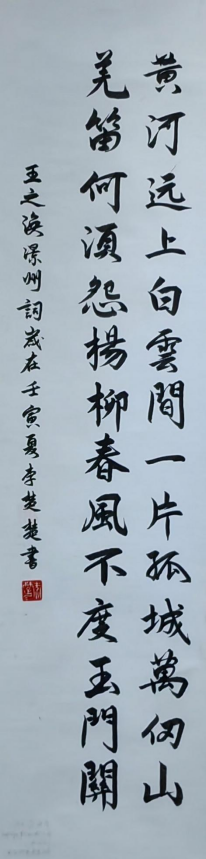 黄河远上白雲間一片孤城萬仞山
羌笛何須怨楊柳春風不度玉門關
王之渙涼州詞歲在壬寅夏李楚楚書